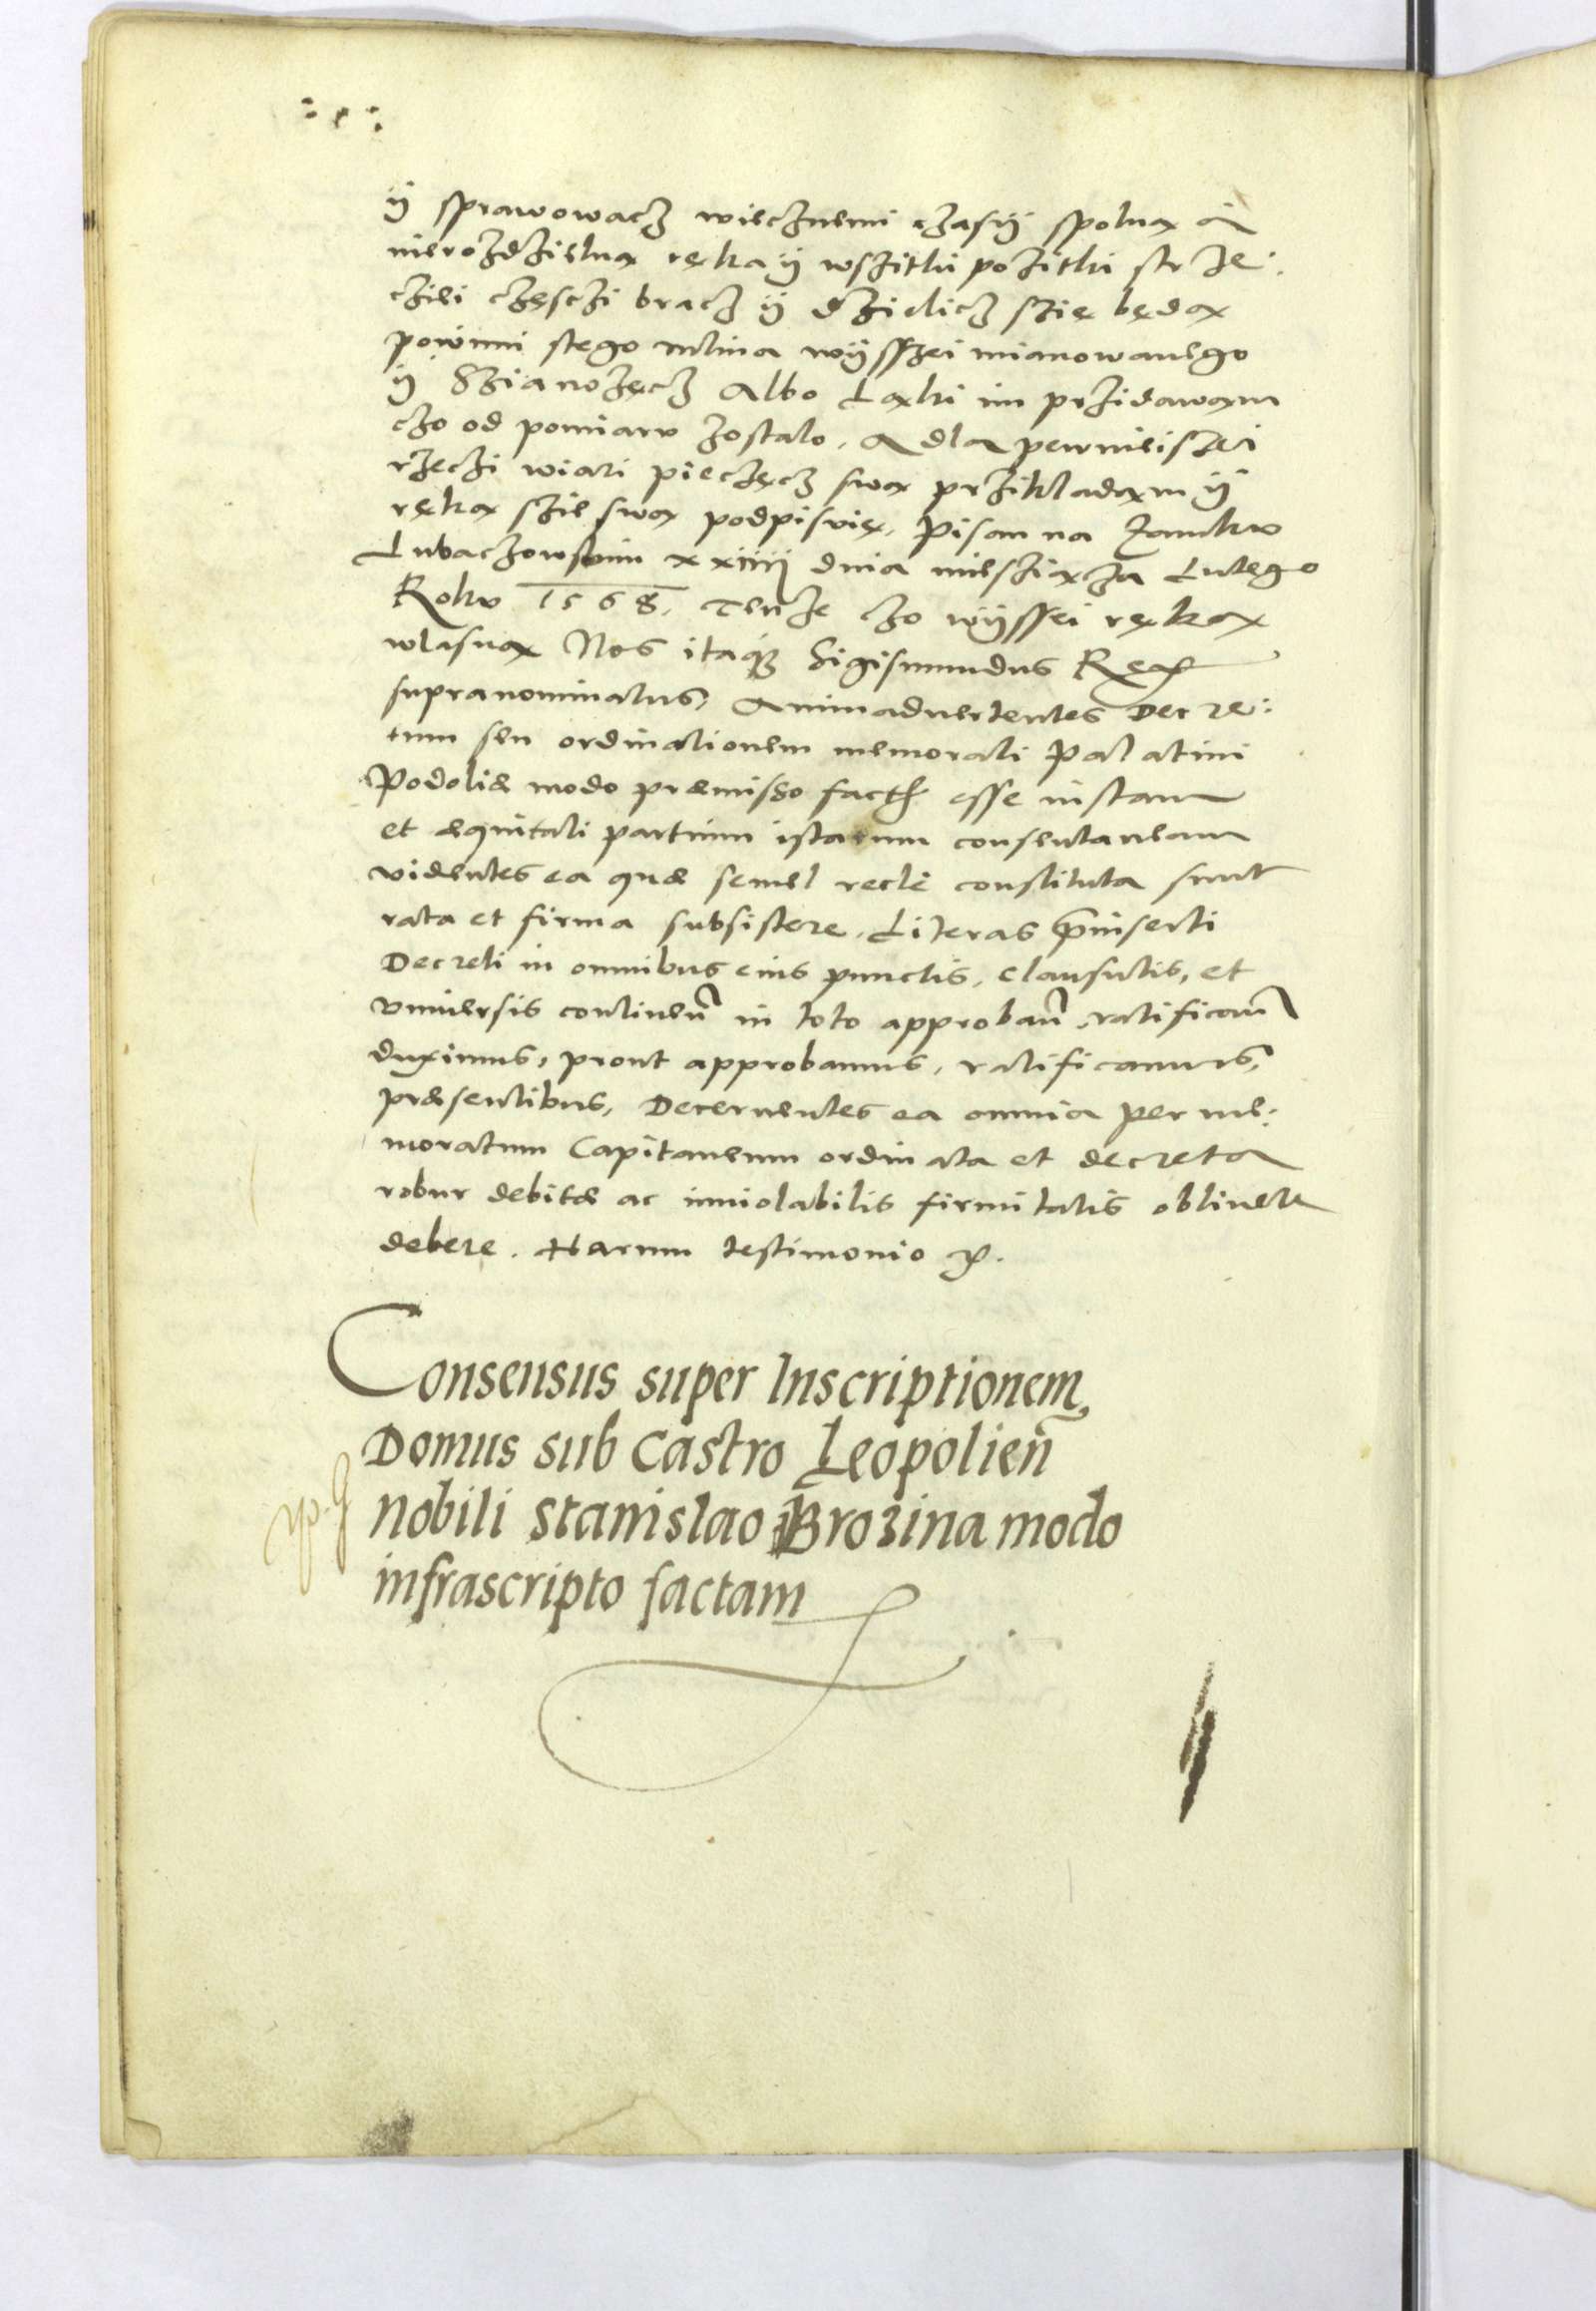 ÿ sprawowacz wiecznemi czasÿ spolną a
nierozdzielną ręką ÿ wszitki pozitki strze:
cziei częsczi bracz ÿ dzielicz szię będą
powinni stego mlina wÿsszei mianowanego
ÿ Szianozęcz Albo Ląki im przidawam
czo od pomiaru zostalo, A dla pewnieiszei
rzeczi wiari pieczęcz swą przikladam ÿ
ręką szie swą podpisuię, Pisan na Zamku
Lubaczowskim xxiiij dnia miesziącza Lutego
Roku 1568. Tenze czo wÿssei ręką
wlasną Nos itaq̃ Sigismundus Rex
supranominatus, Animaduertentes Decre:
tum seu ordinationem memorati Palatini
Podoliæ modo præmisso fact̃ esse iustam
et æquitati partium istarum consentaneam
videntes ea quæ semel rectè constituta sunt
rata et firma subsistere, Literas p̃inserti
Decreti in omnibus eius punctis, clausulis, et
vniuersis continen̄ in toto approban̄, ratifican̄
duximus, prout approbamus, ratificamus,
præsentibus, Decernentes ea omnia per me:
moratum Capitaneum ordinata et decreta
robur debitæ ac inuiolabilis firmitatis obtinere
debere. Harum testimonio
Consensus super Inscriptionem
Domus sub Castro Leopolien̄
Nobili Stanislao Brozina modo
infrascripto factam